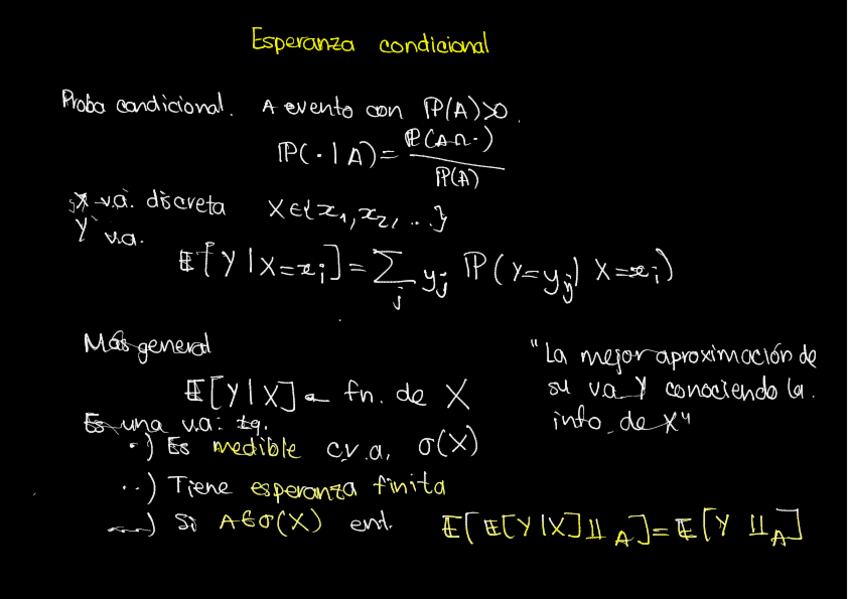 Esperanza condicional
Proba condicional. A evento con ℙ(A)>0.
ℙ(· | A) = ℙ(A∩·) / ℙ(A)
X v.a. discreta X∈{x₁, x₂, ...}
Y v.a.
𝔼[Y | X=xᵢ] = ∑ⱼ yⱼ ℙ(Y=yⱼ | X=xᵢ)
Más general
𝔼[Y | X] ← fn. de X
Es una v.a: tq.
·) Es medible c.r.a. σ(X)
··) Tiene esperanza finita
···) Si A∈σ(X) ent. 𝔼[𝔼[Y | X] 𝟙_A] = 𝔼[Y 𝟙_A]
"La mejor aproximación de
su va Y conociendo la
info. de X"